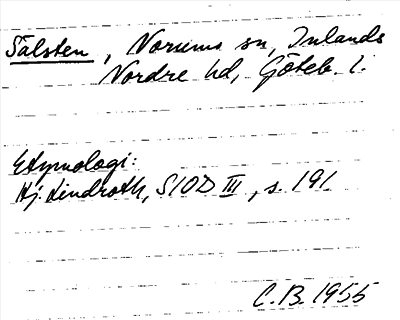 Sälsten, Norums sn, Inlands
Nordre hd, Göteb. l.
Etymologi:
Hj. Lindroth, SIOD III, s. 191
C.B. 1955